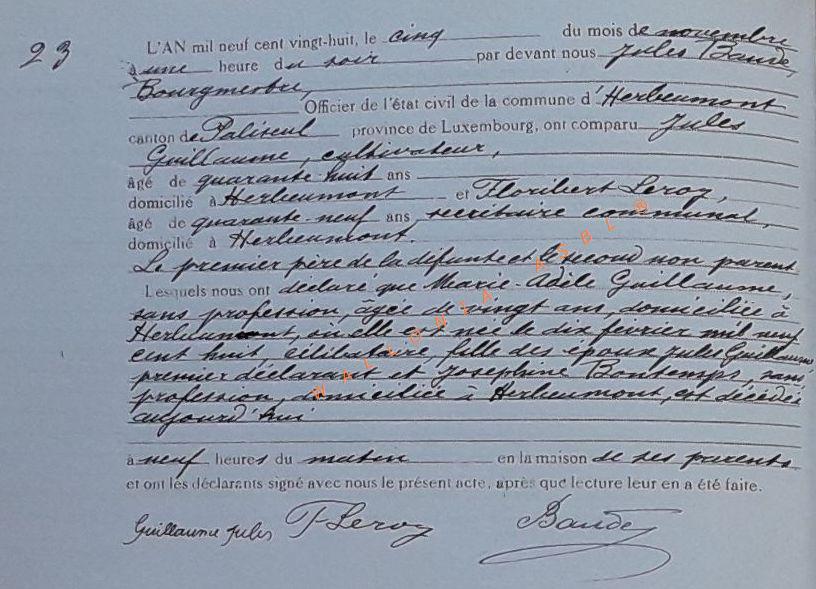 23
L'AN mil neuf cent vingt-huit, le cinq du mois de novembre
à une heure du soir par devant nous Jules Baude,
Bourgmestre,
Officier de l'état civil de la commune d'Herbeumont
canton de Paliseul province de Luxembourg, ont comparu Jules
Guillaume, cultivateur,
âgé de quarante-huit ans
domicilié à Herbeumont et Floribert Leroy,
âgé de quarante-neuf ans, secrétaire communal,
domicilié à Herbeumont.
Le premier père de la défunte et le second non parent
Lesquels nous ont déclaré que Marie-Adèle Guillaume,
sans profession, âgée de vingt ans, domiciliée à
Herbeumont, où elle est née le dix février mil neuf
cent huit, célibataire, fille des époux Jules Guillaume
premier déclarant et Joséphine Bontemps, sans
profession, domiciliée à Herbeumont, est décédée
aujourd'hui
à neuf heures du matin en la maison de ses parents
et ont les déclarants signé avec nous le présent acte, après que lecture leur en a été faite.
Guillaume Jules F Leroy Baude
WALLONIA ASBL ®